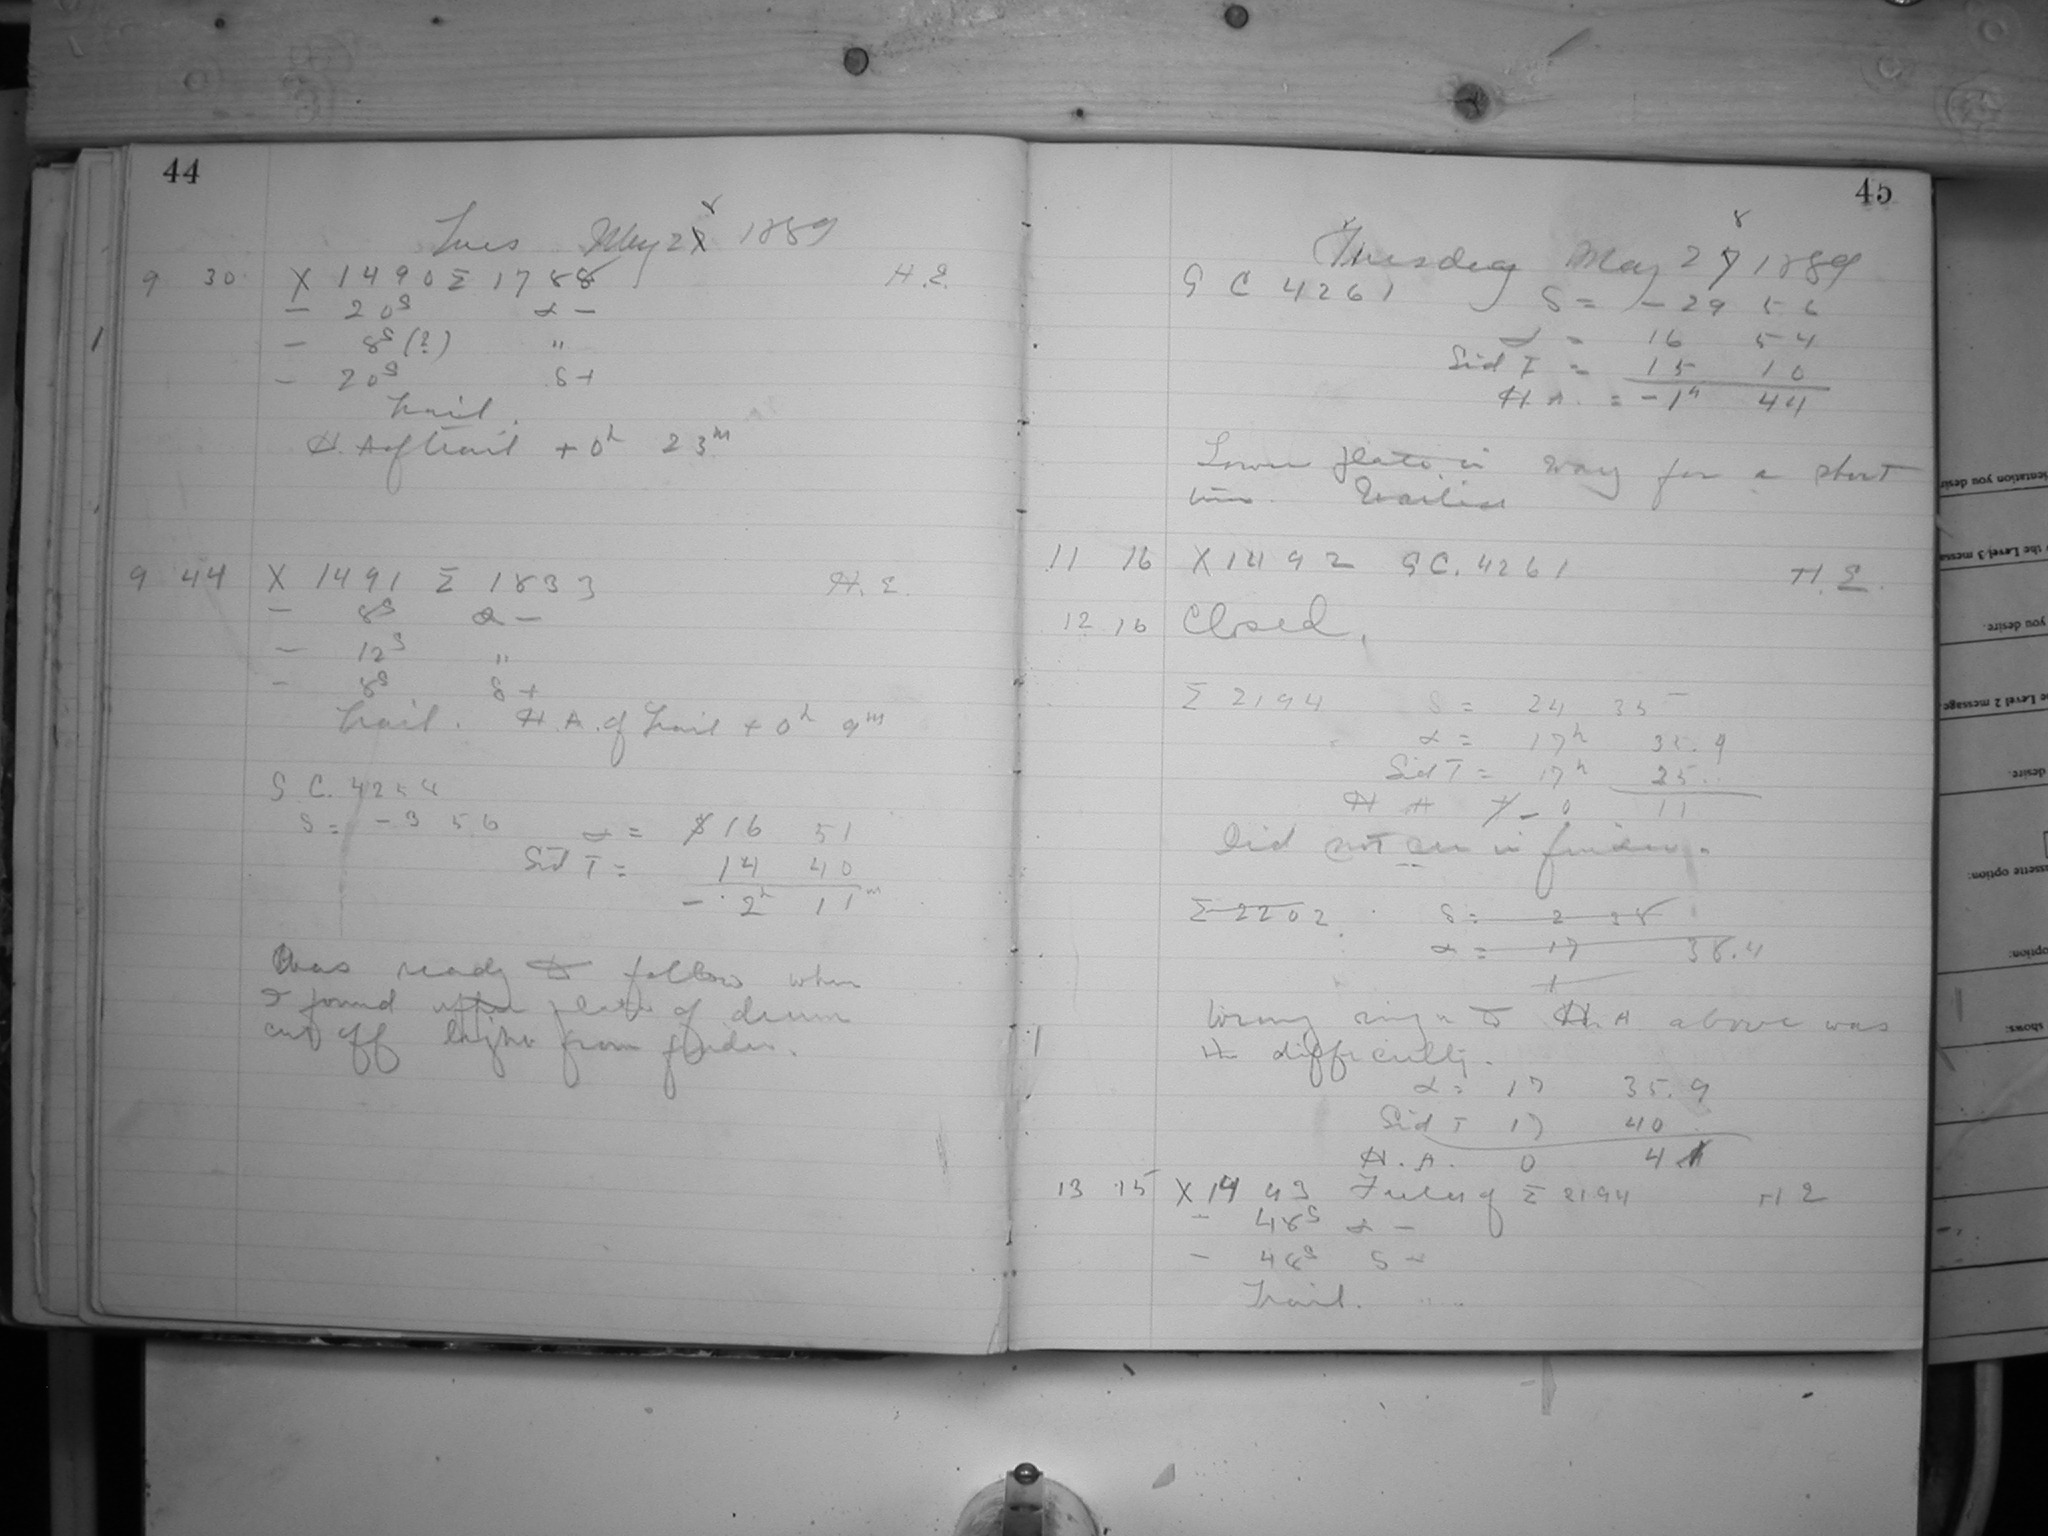 44
Tues May 28 1889
9 30 X 1490 Σ 1788 H.E.
— 20ˢ α —
— 8ˢ (?) "
— 20ˢ δ +
Trail.
H.A. of trail + 0ʰ 23ᵐ
9 44 X 1491 Σ 1833 H.E.
— 8ˢ α —
— 12ˢ "
— 8ˢ δ +
Trail. H.A. of Trail + 0ʰ 9ᵐ
G.C. 4254
δ = -3 56 α = 16 51
Sid T = 14 40
— 2ʰ 11ᵐ
Was ready to follow when
I found upper plate of drum
cut off light from finder.
45
Tuesday May 28 1889
G C 4261 δ = -29 56
α = 16 54
Sid T = 15 10
H.A. = -1ʰ 44
Lower plate in way for a short
time.
11 16 X 1492 G.C. 4261 H.E.
12 16 Closed,
Σ 2194 δ = 24 35
α = 17ʰ 35.9
Sid T = 17ʰ 25
H A — 0 11
Did not see in finder.
Σ 2202 δ = 2 38
α = 17 38.4
Wrong sign to H.A above was
the difficulty.
α = 17 35.9
Sid T 17 40
H.A. 0 4
13 15 X 1493 Σ 2194 H E
— 48ˢ α —
— 48ˢ δ
Trail.